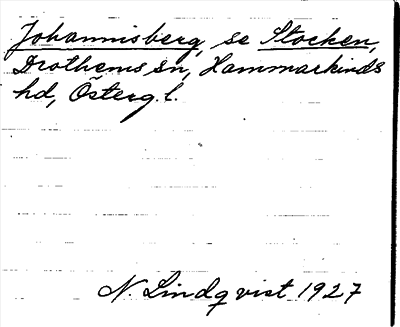 Johannisberg, se Stocken,
Drothems sn, Hammarkinds
hd, Österg.l.
N. Lindqvist 1927